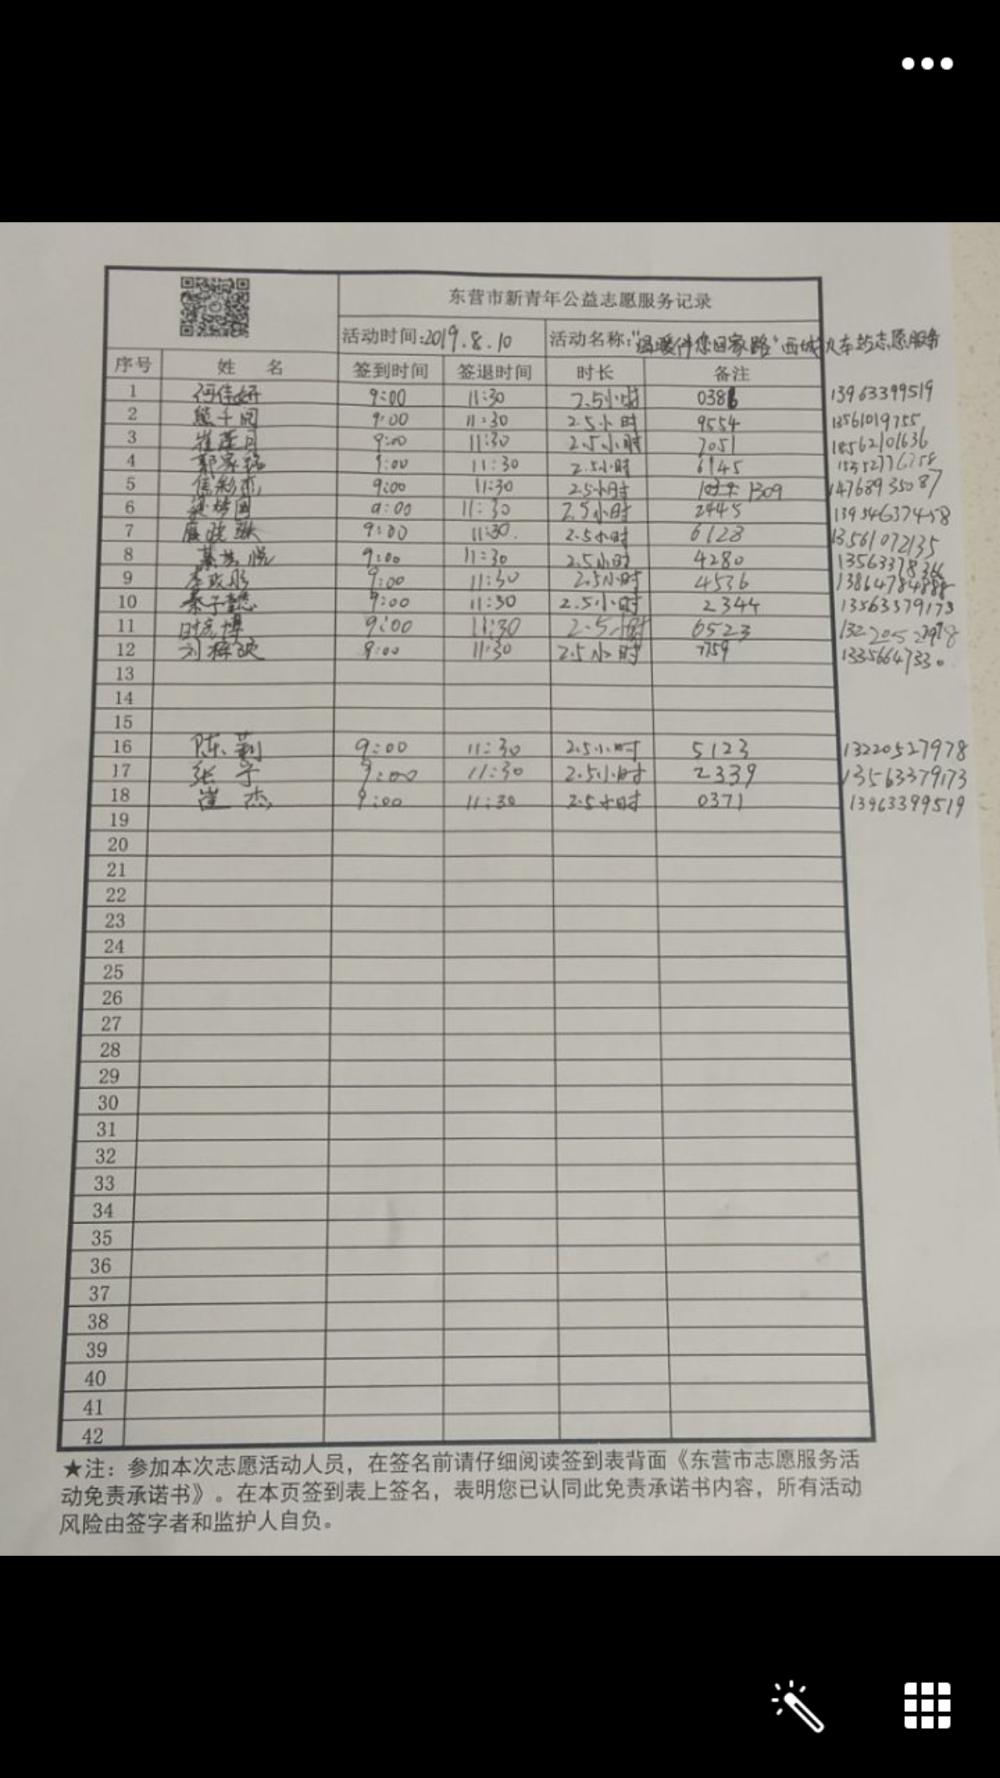 东营市新青年公益志愿服务记录
活动时间:2019.8.10 活动名称:"温暖伴您回家路"西城火车站志愿服务
序号 姓 名 签到时间 签退时间 时长 备注
1 何佳妍 9:00 11:30 2.5小时 038 13963399519
2 9:00 11:30 2.5小时 9554 13561019755
3 9:00 11:30 2.5小时 7051 18562101636
4 郭家铭 9:00 11:30 2.5小时 6145
5 9:00 11:30 2.5小时 1309 14768935087
6 9:00 11:30 2.5小时 2445 13954637458
7 9:00 11:30. 2.5小时 6128 13561072135
8 9:00 11:30 2.5小时 4280
9 9:00 11:30 2.5小时 4536
10 秦子懿 9:00 11:30 2.5小时 2344 13563379173
11 9:00 11:30 2.5小时 6523
12 9:00 11:30 2.5小时 7759 13356647330
13
14
15
16 陈莉 9:00 11:30 2.5小时 5123 13220527978
17 张宁 9:00 11:30 2.5小时 2339 13563379173
18 崔杰 9:00 11:30 2.5小时 0371 13963399519
19
20
21
22
23
24
25
26
27
28
29
30
31
32
33
34
35
36
37
38
39
40
41
42
★注：参加本次志愿活动人员，在签名前请仔细阅读签到表背面《东营市志愿服务活
动免责承诺书》。在本页签到表上签名，表明您已认同此免责承诺书内容，所有活动
风险由签字者和监护人自负。